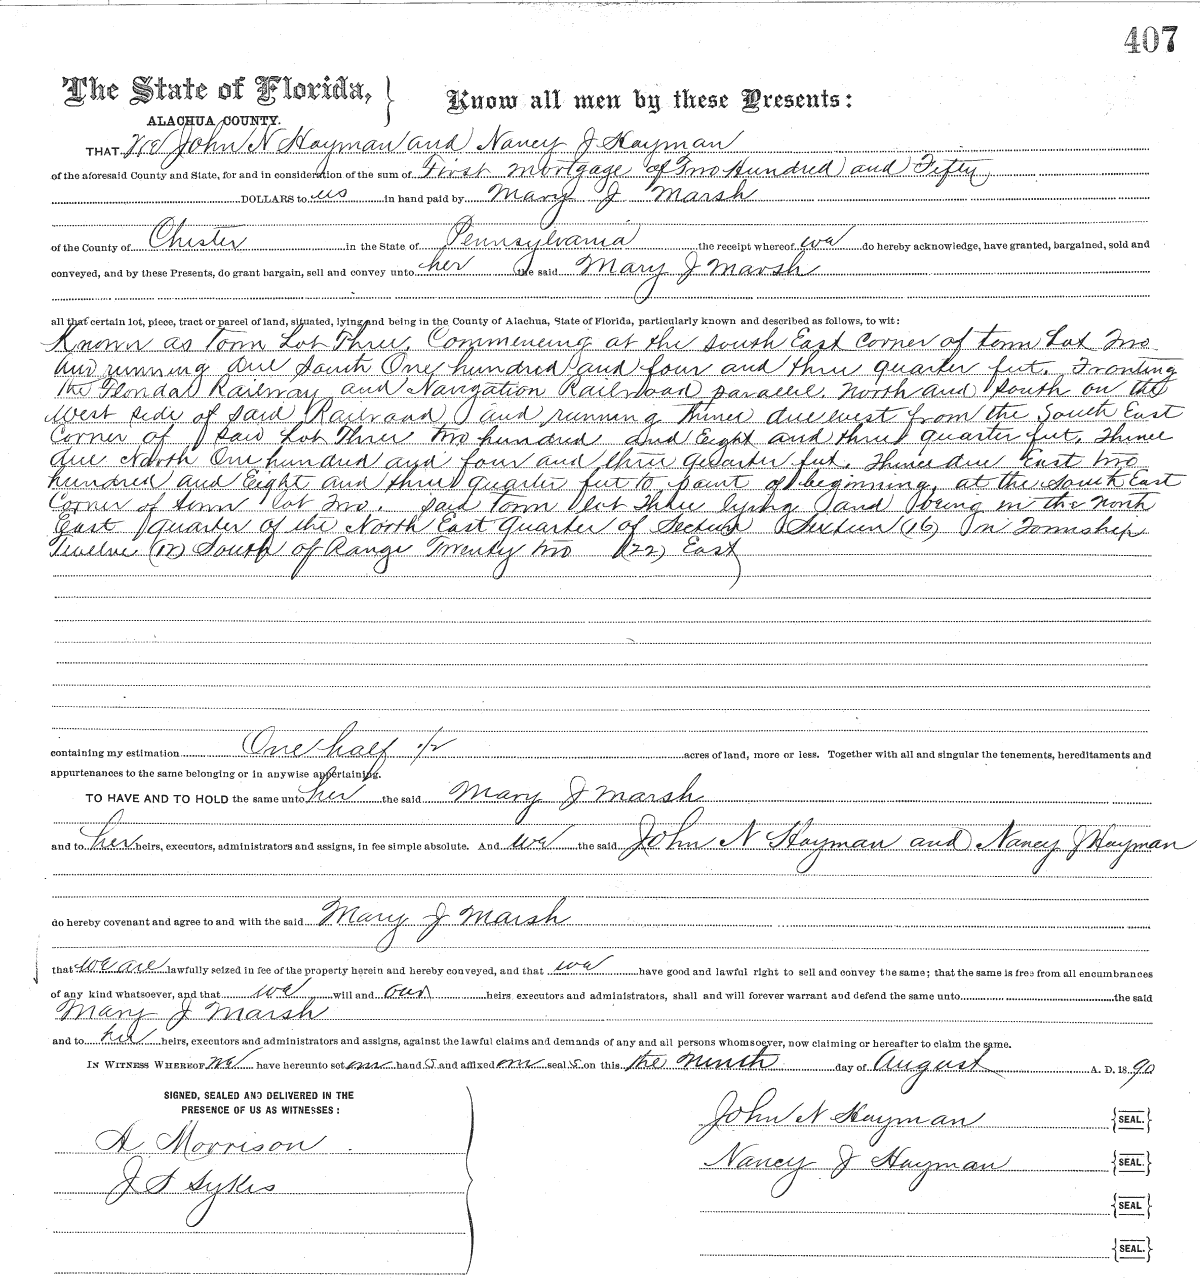 407
The State of Florida, } Know all men by these Presents:
ALACHUA COUNTY.
THAT We John N Hayman and Nancy J Hayman
of the aforesaid County and State, for and in consideration of the sum of First Mortgage of Two Hundred and Fifty
DOLLARS to us in hand paid by Mary J Marsh
of the County of Chester in the State of Pennsylvania the receipt whereof we do hereby acknowledge, have granted, bargained, sold and
conveyed, and by these Presents, do grant bargain, sell and convey unto her the said Mary J Marsh
all that certain lot, piece, tract or parcel of land, situated, lying and being in the County of Alachua, State of Florida, particularly known and described as follows, to wit:
Known as Town Lot Three. Commencing at the South East Corner of town Lot Two
and running due South One hundred and four and three quarter feet. Fronting
the Florida Railway and Navigation Railroad parallel North and South on the
West side of said Railroad and running thence due west from the South East
Corner of said Lot Three two hundred and Eight and three quarter feet. Thence
due North One hundred and four and three quarter feet. Thence due East two
hundred and Eight and three quarter feet to point of beginning at the South East
Corner of town lot Two. Said town lot Three lying and being in the North
East quarter of the North East Quarter of Section Section (16) in Township
Twelve (12) South of Range Twenty two (22) East
containing my estimation One half 1/2 acres of land, more or less. Together with all and singular the tenements, hereditaments and
appurtenances to the same belonging or in anywise appertaining.
TO HAVE AND TO HOLD the same unto her the said Mary J Marsh
and to her heirs, executors, administrators and assigns, in fee simple absolute. And we the said John N Hayman and Nancy J Hayman
do hereby covenant and agree to and with the said Mary J Marsh
that we are lawfully seized in fee of the property herein and hereby conveyed, and that we have good and lawful right to sell and convey the same; that the same is free from all encumbrances
of any kind whatsoever, and that we will and our heirs executors and administrators, shall and will forever warrant and defend the same unto the said
Mary J Marsh
and to her heirs, executors and administrators and assigns, against the lawful claims and demands of any and all persons whomsoever, now claiming or hereafter to claim the same.
IN WITNESS WHEREOF we have hereunto set our hand s and affixed our seal s on this the Ninth day of August A. D. 1890
SIGNED, SEALED AND DELIVERED IN THE
PRESENCE OF US AS WITNESSES:
John N Hayman {SEAL.}
A Morrison
Nancy J Hayman {SEAL.}
J S Sykes
{SEAL}
{SEAL.}